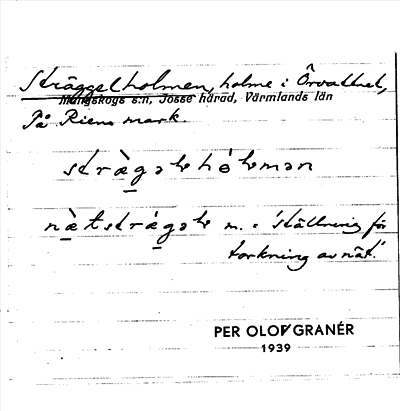 Sträggelholmen, holme i Örvattnet,
Mangskogs s:n, Jösse härad, Värmlands län
På Riens mark.
strä̀gəɫhóɫmən
nä̀tsträ́gəɫ m. = 'ställning för
torkning av nät.'
PER OLOF GRANÉR
1939